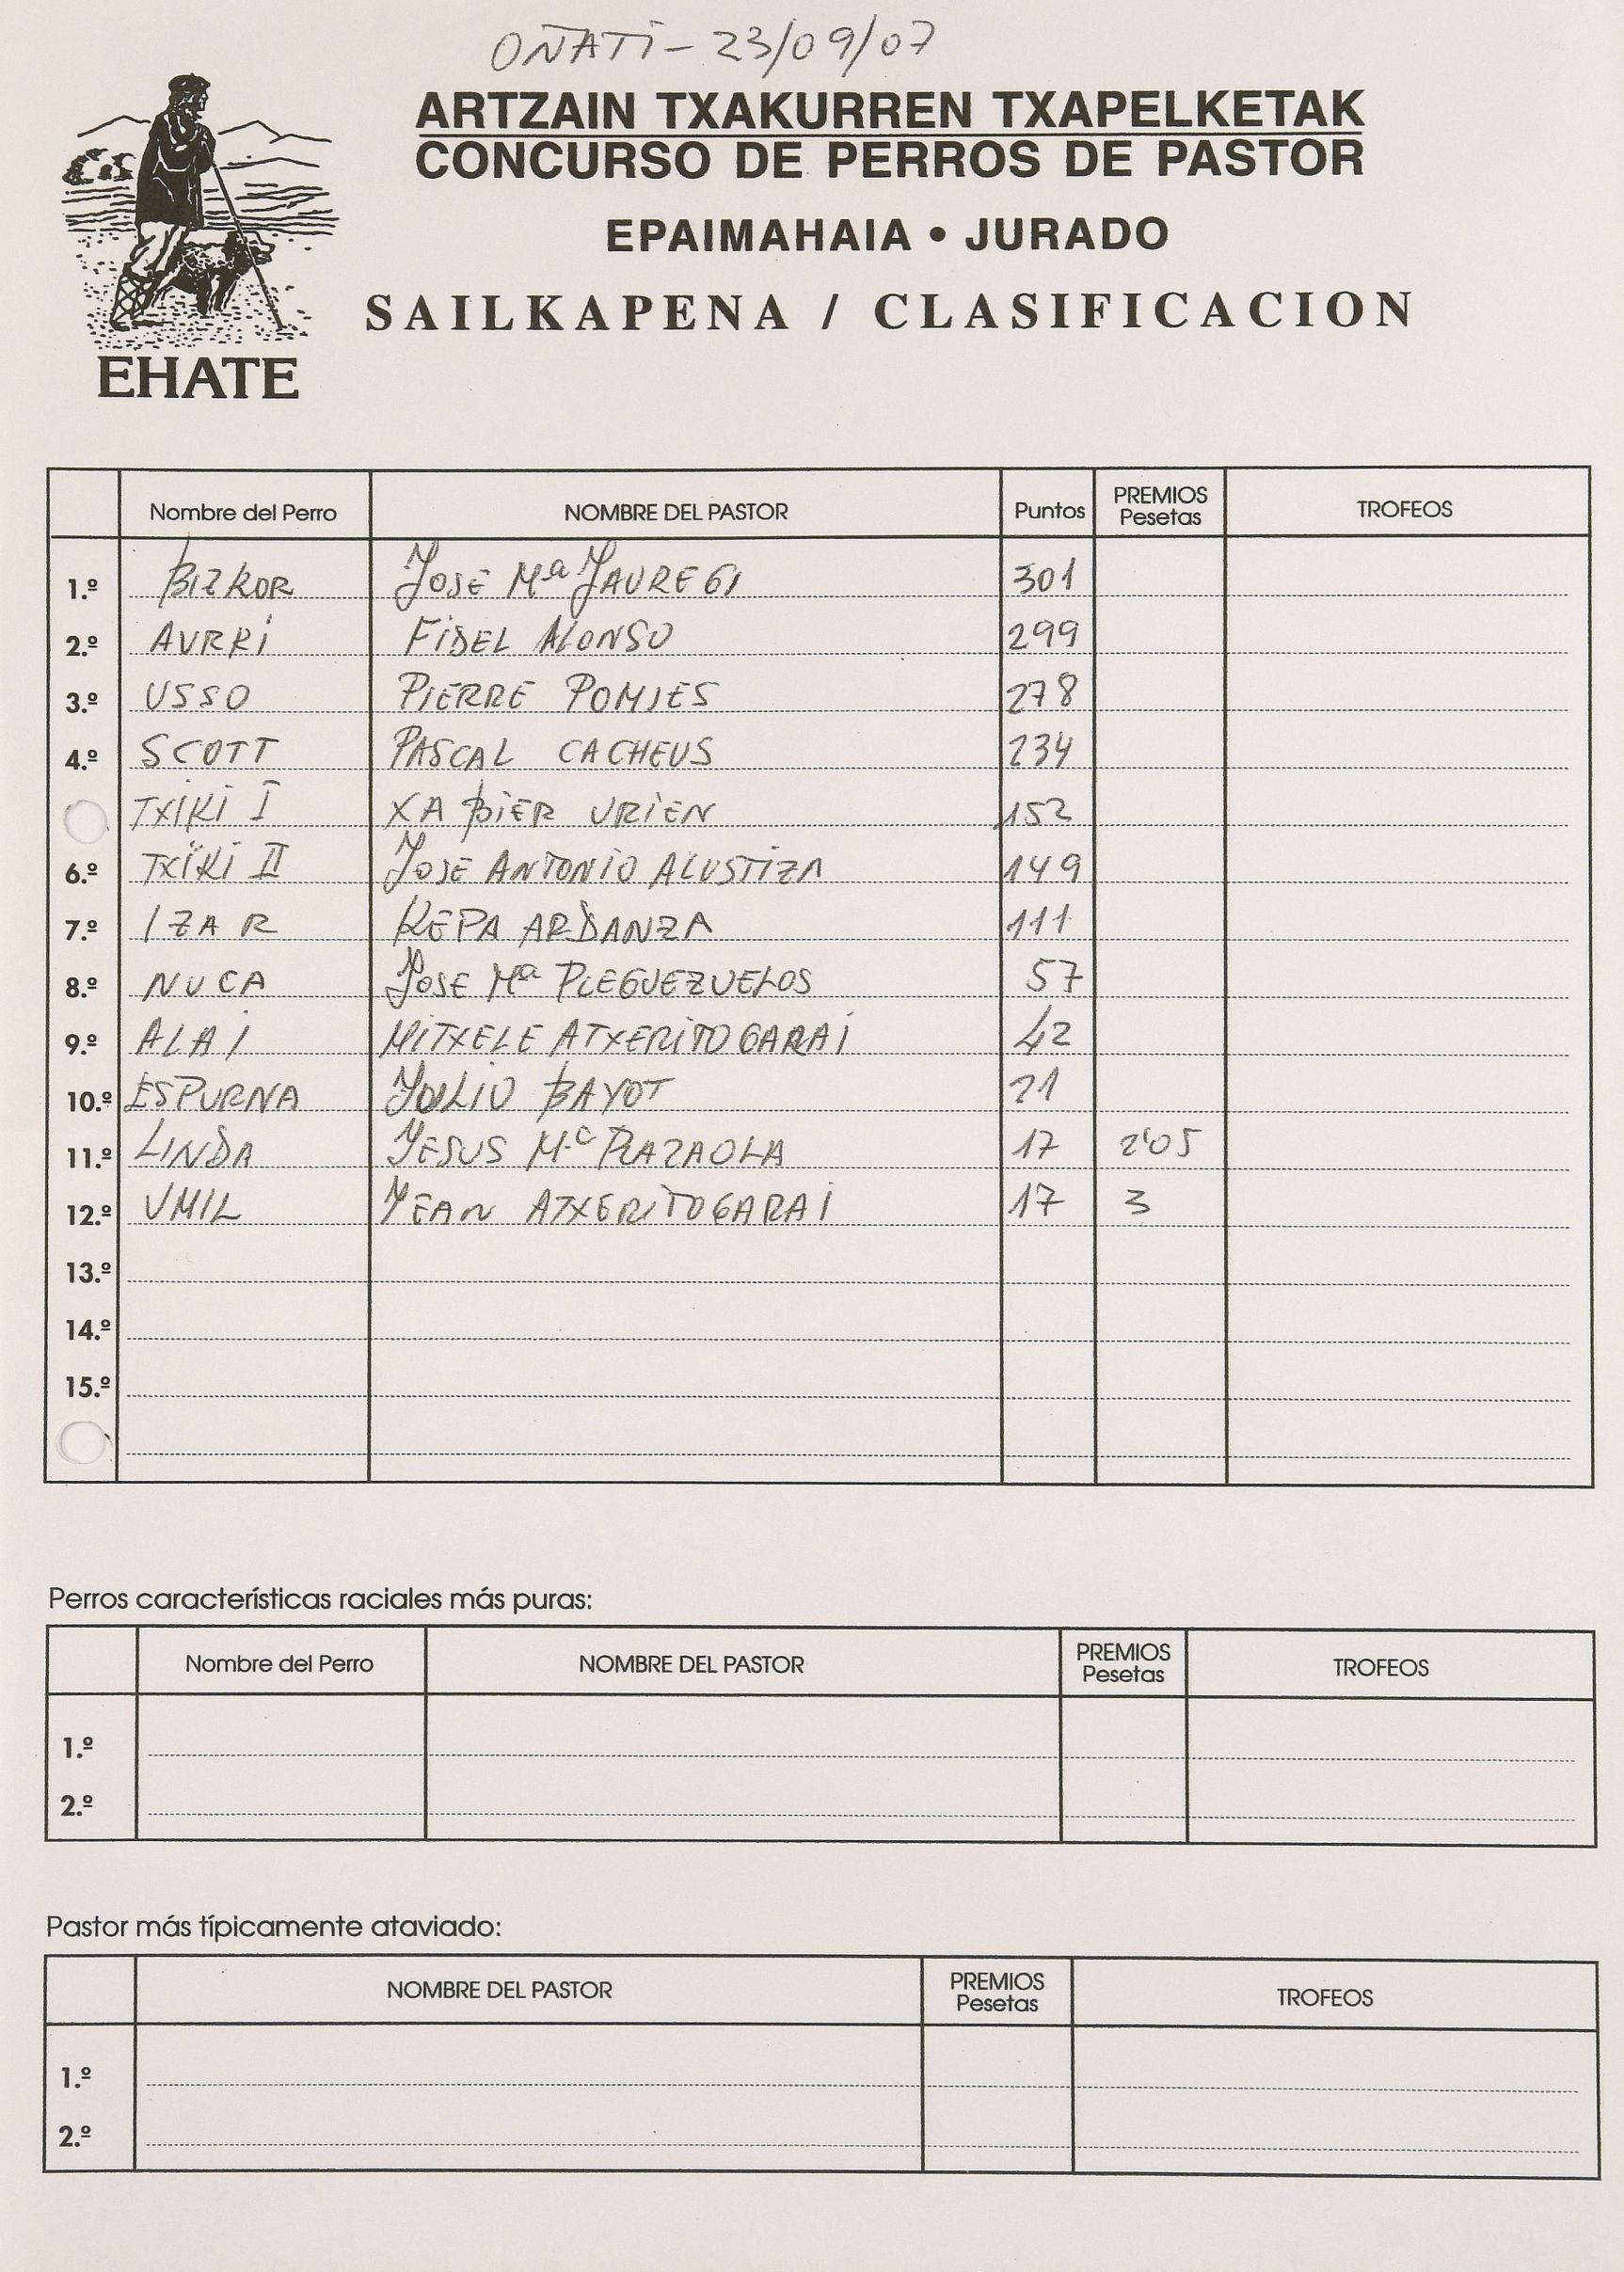 OÑATI - 23/09/07
ARTZAIN TXAKURREN TXAPELKETAK
CONCURSO DE PERROS DE PASTOR
EPAIMAHAIA • JURADO
SAILKAPENA / CLASIFICACION
EHATE
Nombre del Perro NOMBRE DEL PASTOR Puntos PREMIOS Pesetas TROFEOS
1.º BIZKOR JOSE Mª JAUREGI 301
2.º AURRI FIDEL ALONSO 299
3.º USSO PIERRE POMIES 278
4.º SCOTT PASCAL CACHEUS 234
TXIKI I XABIER URIEN 152
6.º TXIKI II JOSE ANTONIO ALUSTIZA 149
7.º IZAR KEPA ARDANZA 111
8.º NUCA JOSE Mª PLEGUEZUELOS 57
9.º ALAI MITXELE ATXERITOGARAI 42
10.º ESPURNA JULIO BAYOT 21
11.º LINDA JESUS Mª PLAZAOLA 17 2'05
12.º UMIL JEAN ATXERITOGARAI 17 3
13.º
14.º
15.º
Perros características raciales más puras:
Nombre del Perro NOMBRE DEL PASTOR PREMIOS Pesetas TROFEOS
1.º
2.º
Pastor más típicamente ataviado:
NOMBRE DEL PASTOR PREMIOS Pesetas TROFEOS
1.º
2.º